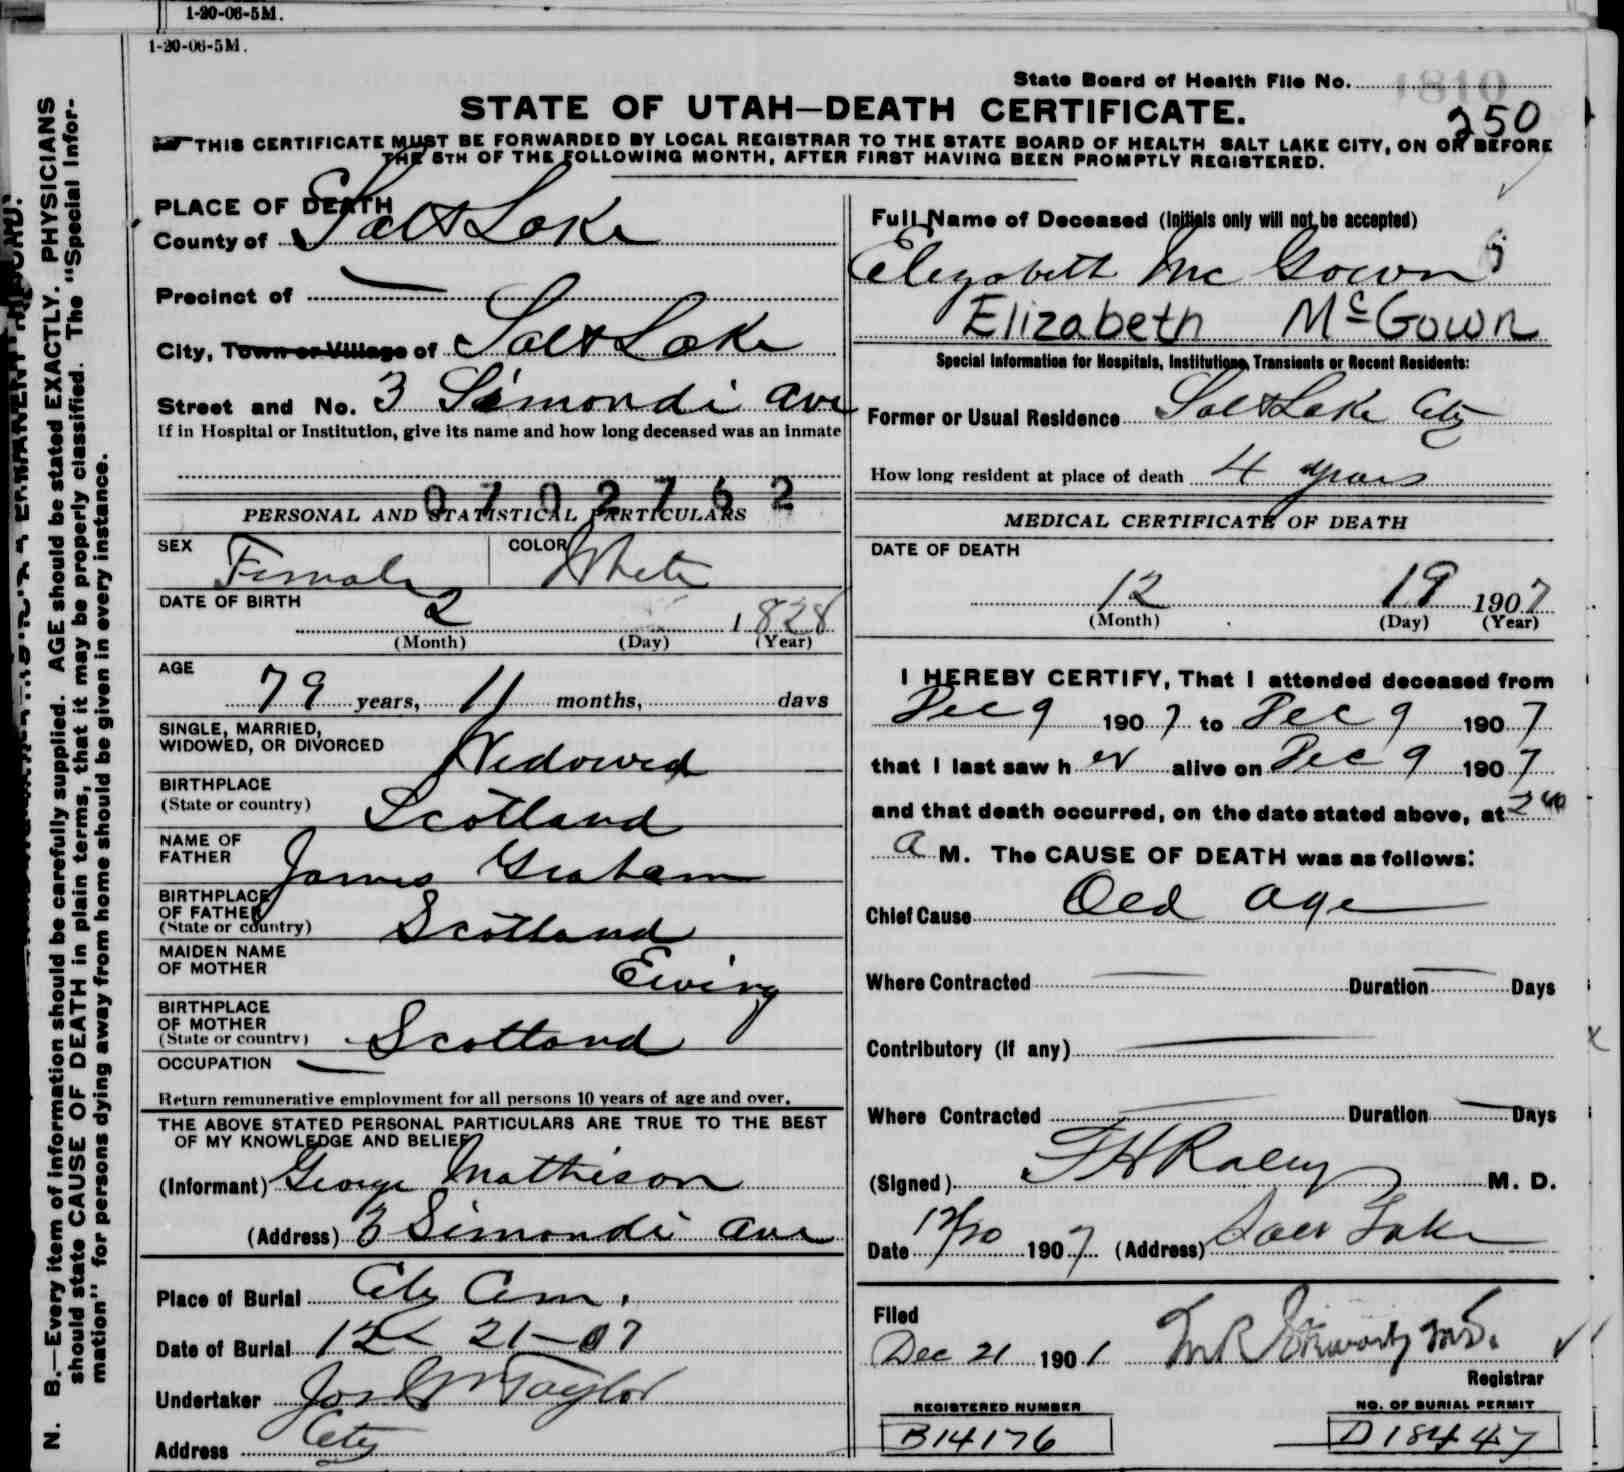 1-20-06-5M.
1-20-06-5M.
State Board of Health File No. 1810
250
STATE OF UTAH—DEATH CERTIFICATE.
THIS CERTIFICATE MUST BE FORWARDED BY LOCAL REGISTRAR TO THE STATE BOARD OF HEALTH SALT LAKE CITY, ON OR BEFORE
THE 5TH OF THE FOLLOWING MONTH, AFTER FIRST HAVING BEEN PROMPTLY REGISTERED.
PLACE OF DEATH
County of Salt Lake
Precinct of —
City, Town or Village of Salt Lake
Street and No. 3 Simondi Ave
If in Hospital or Institution, give its name and how long deceased was an inmate
0702762
PERSONAL AND STATISTICAL PARTICULARS
SEX Female COLOR White
DATE OF BIRTH
2 1828
(Month) (Day) (Year)
AGE
79 years, 11 months, days
SINGLE, MARRIED,
WIDOWED, OR DIVORCED Widowed
BIRTHPLACE
(State or country) Scotland
NAME OF
FATHER James Graham
BIRTHPLACE
OF FATHER
(State or country) Scotland
MAIDEN NAME
OF MOTHER Ewing
BIRTHPLACE
OF MOTHER
(State or country) Scotland
OCCUPATION —
Return remunerative employment for all persons 10 years of age and over.
THE ABOVE STATED PERSONAL PARTICULARS ARE TRUE TO THE BEST
OF MY KNOWLEDGE AND BELIEF
(Informant) George Mathison
(Address) 3 Simondi Ave
Place of Burial City Cem.
Date of Burial 12 21-07
Undertaker Jos Wm Taylor
Address City
Full Name of Deceased (Initials only will not be accepted)
Elizabeth Mc Gown
Elizabeth McGown
Special Information for Hospitals, Institutions, Transients or Recent Residents:
Former or Usual Residence Salt Lake City
How long resident at place of death 4 years
MEDICAL CERTIFICATE OF DEATH
DATE OF DEATH
12 19 1907
(Month) (Day) (Year)
I HEREBY CERTIFY, That I attended deceased from
Dec 9 1907 to Dec 9 1907
that I last saw her alive on Dec 9 1907
and that death occurred, on the date stated above, at 2 40
a M. The CAUSE OF DEATH was as follows:
Chief Cause Old age
Where Contracted — Duration — Days
Contributory (if any) —
Where Contracted — Duration — Days
(Signed) F H Raley M. D.
Date 12/20 1907 (Address) Salt Lake
Filed
Dec 21 1901 M R M.D.
Registrar
REGISTERED NUMBER
B14176
NO. OF BURIAL PERMIT
D18447
N. B.—Every item of information should be carefully supplied. AGE should be stated EXACTLY. PHYSICIANS
should state CAUSE OF DEATH in plain terms, that it may be properly classified. The "Special Infor-
mation" for persons dying away from home should be given in every instance.